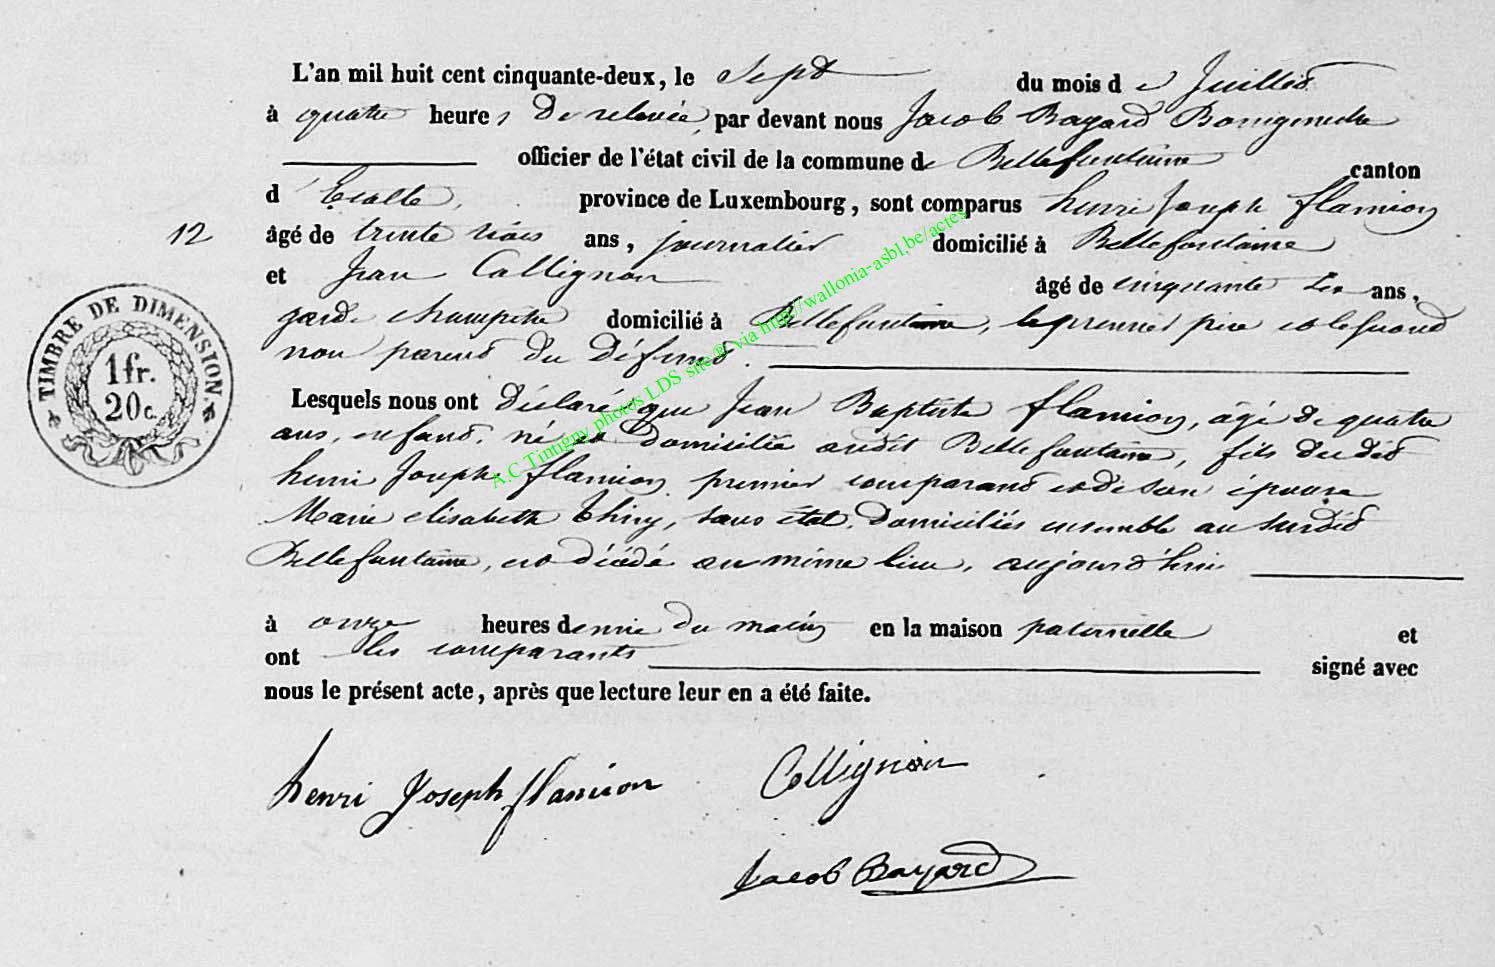 L'an mil huit cent cinquante-deux, le Sept du mois de Juillet
à quatre heures De relevée, par devant nous Jacob Bayard Bourgmestre
officier de l'état civil de la commune de Bellefontaine canton
d'Etalle, province de Luxembourg, sont comparus henri Joseph flamion
12 âgé de trente trois ans, journalier domicilié à Bellefontaine
et Jean Collignon âgé de cinquante ans,
garde champetre domicilié à Bellefontaine, le premier père et le second
non parent du Défunt.
Lesquels nous ont Déclaré que Jean Baptiste flamion, âgé de quatre
ans, enfant, né et Domicilié audit Bellefontaine, fils du dit
henri Joseph flamion premier comparant et de son épouse
Marie elisabeth Thiry, sans état, Domiciliés ensemble au susdit
Bellefontaine, est décédé au même lieu, aujourd'hui
à onze heures demie du matin en la maison paternelle et
ont les comparants signé avec
nous le présent acte, après que lecture leur en a été faite.
henri Joseph flamion Collignon
Jacob Bayard
TIMBRE DE DIMENSION.
1 fr.
20 c.
A.C Tintigny photos LDS site @ via http://wallonia-asbl.be/actes